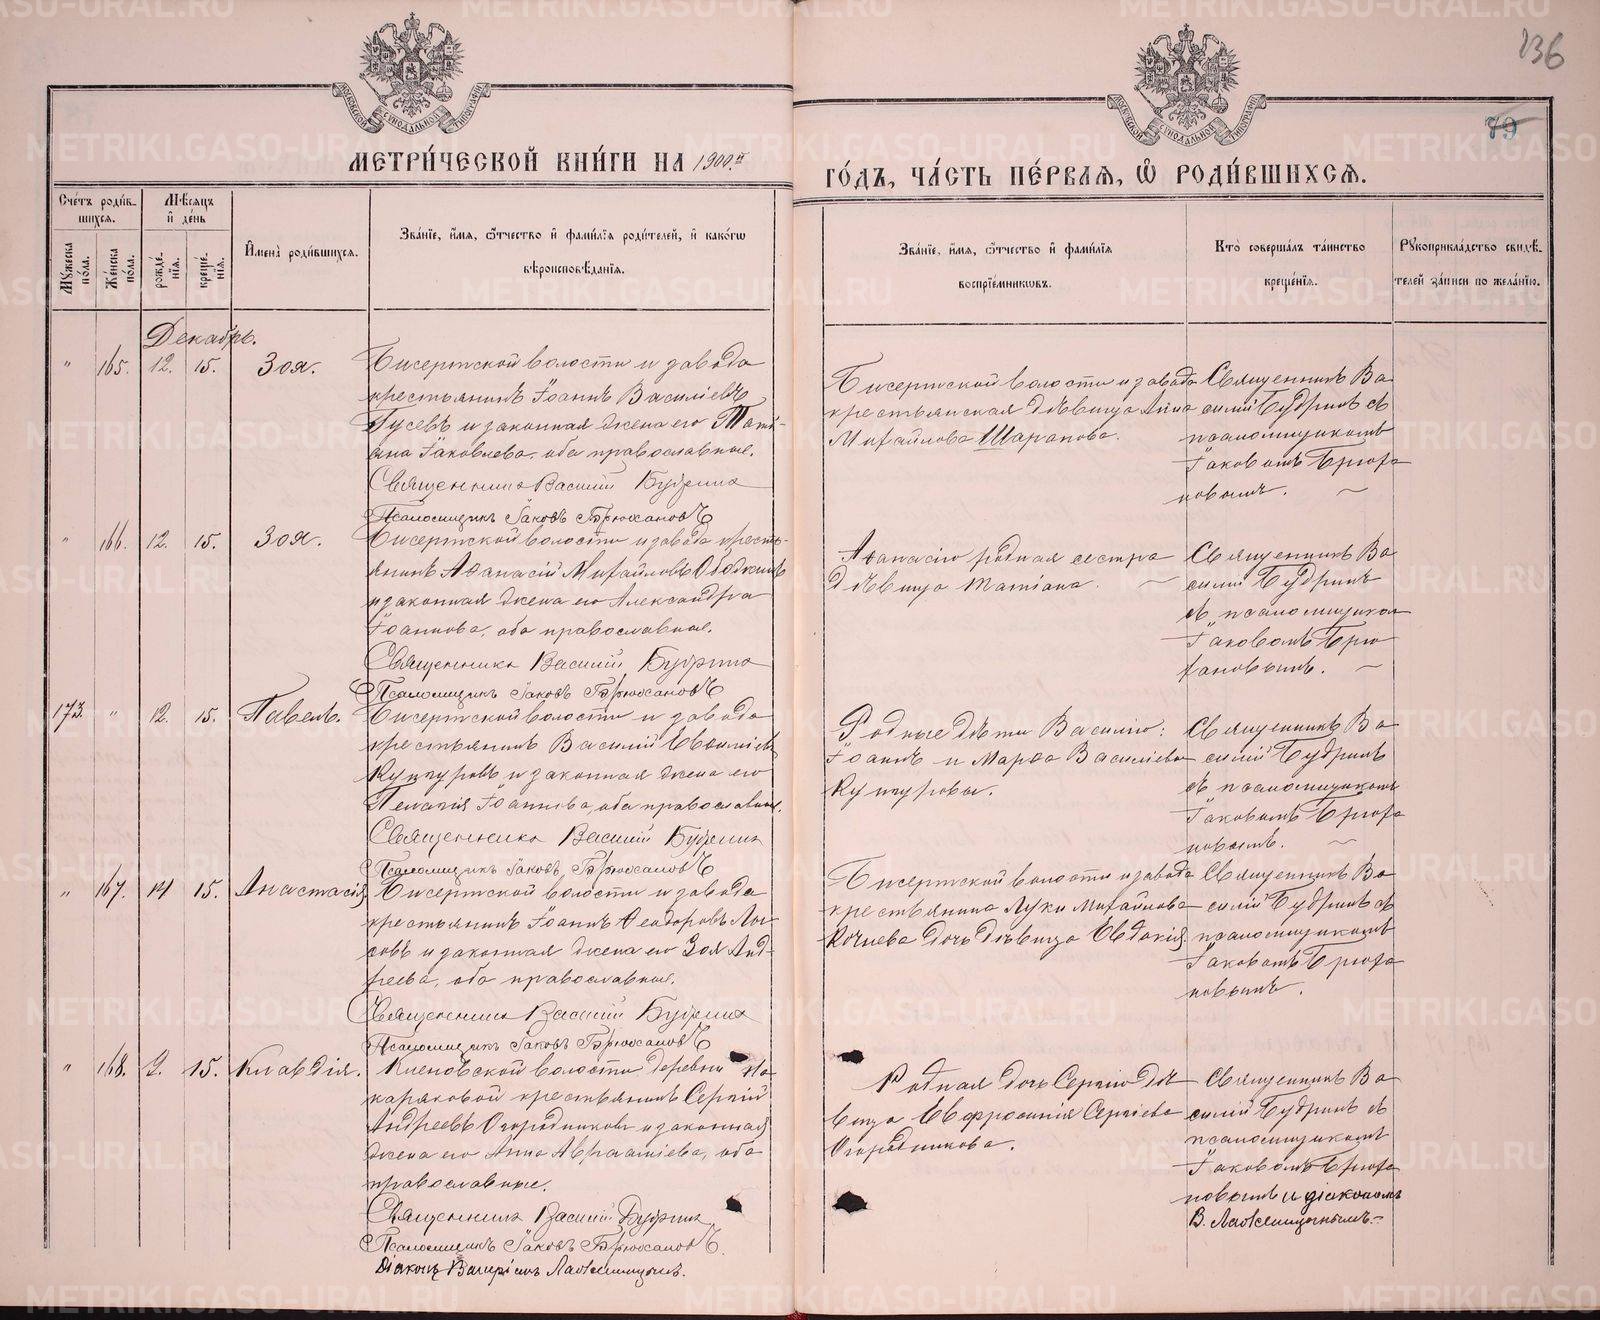 136
79
МОСКОВСКОЙ СѴНОДАЛЬНОЙ ТИПОГРАФІИ
МОСКОВСКОЙ СѴНОДАЛЬНОЙ ТИПОГРАФІИ
МЕТРИ́ЧЕСКОЙ КНИ́ГИ НА 1900й
ГО́ДЪ, ЧА́СТЬ ПЕ́РВАѦ, Ѽ РОДИ́ВШИХСѦ.
Сче́тъ роди́вшихсѧ.
Мѣ́сѧцъ и҆ де́нь
Мꙋ́жеска по́ла.
Же́нска по́ла.
рожде́нїѧ.
креще́нїѧ.
И҆мена̀ роди́вшихсѧ.
Зва́нїе, и҆́мѧ, ѻ҆́тчество и҆ фами́лїѧ роди́телей, и҆ како́гѡ
вѣроисповѣ́данїѧ.
Зва́нїе, и҆́мѧ, ѻ҆́тчество и҆ фами́лїѧ
воспрїе́мникѡвъ.
Кто̀ соверша́лъ та́инство
креще́нїѧ.
Рꙋкоприкла́дство свидѣ́-
телей за́писи по жела́нїю.
Декабрь.
" 165. 12. 15. Зоя.
Бисертской волости и завода
крестьянинъ Іоаннъ Василіевъ
Гусевъ и законная жена его Тати-
ана Іаковлева, оба православные.
Священникъ Василій Будринъ
Псаломщикъ Іаковъ Брюхановъ
Бисертской волости и завода
крестьянская дѣвица Анна
Михайлова Шарапова.
Священникъ Ва
силій Будринъ съ
псаломщикомъ
Іаковомъ Брюха
новымъ.
" 166. 12. 15. Зоя.
Бисертской волости и завода кресть-
янинъ Аѳанасій Михайловъ
и законная жена его Александра
Іоаннова, оба православные.
Священникъ Василій Будринъ
Псаломщикъ Іаковъ Брюхановъ
Аѳанасію родная сестра
дѣвица Татіана.
Священникъ Ва
силій Будринъ
съ псаломщиком
Іаковомъ Брю
хановымъ.
173. " 12. 15. Павелъ.
Бисертской волости и завода
крестьянинъ Василій Евѳиміевъ
Кунгуровъ и законная жена его
Пелагія Іоаннова, оба православные.
Священникъ Василій Будринъ
Псаломщикъ Іаковъ Брюхановъ
Родные дѣти Василію:
Іоаннъ и Марѳа Василіевы
Кунгуровы.
Священникъ Ва
силій Будринъ
съ псаломщикомъ
Іаковомъ Брюха
новымъ.
" 167. 14 15. Анастасія
Бисертской волости и завода
крестьянинъ Іоаннъ Ѳеодоровъ
и законная жена его Зоя Анд-
реева, оба православные.
Священникъ Василій Будринъ
Псаломщикъ Іаковъ Брюхановъ
Бисертской волости и завода
крестьянина Луки Михайлова
Кочнева дочь дѣвица Евдокія.
Священникъ Ва
силій Будринъ съ
псаломщикомъ
Іаковомъ Брюха
новымъ.
" 168. 15. Клавдія.
Кленовской волости деревни
крестьянинъ Сергій
Андреевъ Огородниковъ и законная
жена его Анна Авраамiева, оба
православные.
Священникъ Василій Будринъ
Псаломщикъ Іаковъ Брюхановъ.
Діаконъ Валеріанъ
Родная дочь Сергію дѣ
вица Евфросинія Сергіева
Огородникова.
Священникъ Ва
силій Будринъ съ
псаломщикомъ
Іаковомъ Брюха
новымъ и діакономъ
METRIKI.GASO-URAL.RU